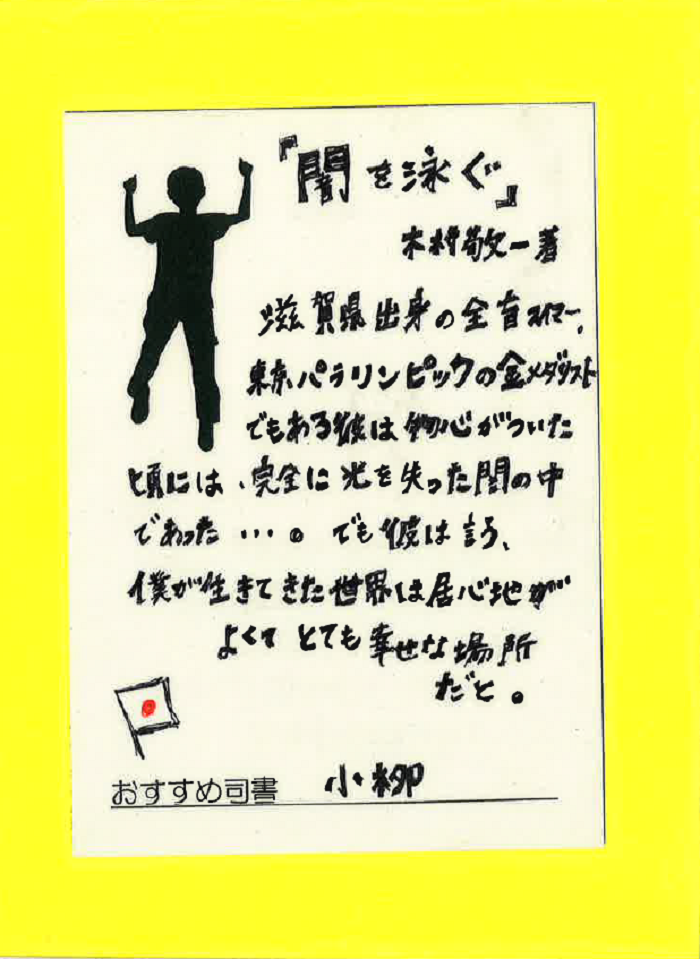 『闇を泳ぐ』
木村敬一著
滋賀県出身の全盲スイマー、
東京パラリンピックの金メダリスト
でもある彼は物心がついた
頃には、完全に光を失った闇の中
であった…。でも彼は言う、
僕が生きてきた世界は居心地が
よくて とても幸せな場所
だと。
おすすめ司書 小柳